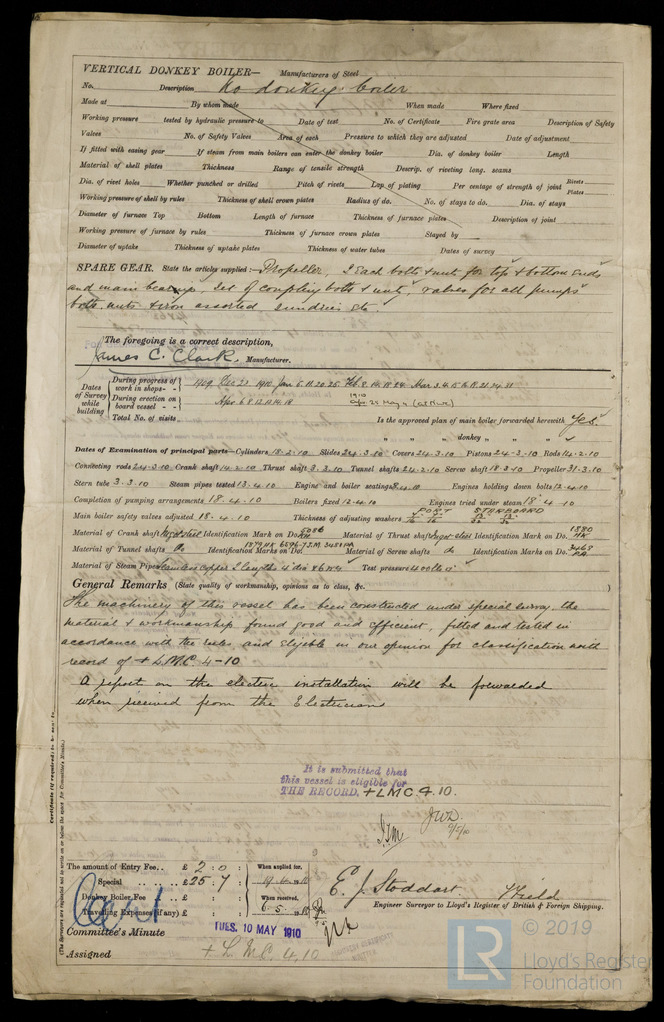 VERTICAL DONKEY BOILER— Manufacturers of Steel
No. Description No donkey boiler
Made at By whom made When made Where fixed
Working pressure tested by hydraulic pressure to Date of test No. of Certificate Fire grate area Description of Safety
Valves No. of Safety Valves Area of each Pressure to which they are adjusted Date of adjustment
If fitted with easing gear If steam from main boilers can enter the donkey boiler Dia. of donkey boiler Length
Material of shell plates Thickness Range of tensile strength Descrip. of riveting long. seams
Dia. of rivet holes Whether punched or drilled Pitch of rivets Lap of plating Per centage of strength of joint Rivets Plates
Working pressure of shell by rules Thickness of shell crown plates Radius of do. No. of stays to do. Dia. of stays
Diameter of furnace Top Bottom Length of furnace Thickness of furnace plates Description of joint
Working pressure of furnace by rules Thickness of furnace crown plates Stayed by
Diameter of uptake Thickness of uptake plates Thickness of water tubes Dates of survey
SPARE GEAR. State the articles supplied:— Propeller, 2 Each bolts & nuts for top & bottom ends
and main bearings, Set of coupling bolts & nuts, valves for all pumps
bolts, nuts & iron assorted sundries etc.
The foregoing is a correct description,
James C. Clark. Manufacturer.
Dates of Survey while building
During progress of work in shops - - 1909 Dec 23 1910 Jan 5. 11. 20. 25 Feb 8. 14. 18. 24 Mar 3. 4. 15. 18. 21. 24. 31
During erection on board vessel - - Apr 6. 8. 12. 13. 14. 18 1910
Total No. of visits Is the approved plan of main boiler forwarded herewith Yes.
" " " donkey " " "
Dates of Examination of principal parts—Cylinders 18-2-10 Slides 24-3-10 Covers 24-3-10 Pistons 24-3-10 Rods 14-2-10
Connecting rods 24-3-10 Crank shaft 14-3-10 Thrust shaft 3-3-10 Tunnel shafts 24-2-10 Screw shaft 18-3-10 Propeller 31-3-10
Stern tube 3-3-10 Steam pipes tested 13-4-10 Engine and boiler seatings 8-4-10 Engines holding down bolts 12-4-10
Completion of pumping arrangements 18-4-10 Boilers fixed 12-4-10 Engines tried under steam 18-4-10
PORT STARBOARD
Main boiler safety valves adjusted 18-4-10 Thickness of adjusting washers
Material of Crank shaft Ingot steel Identification Mark on Do. Material of Thrust shaft Ingot steel Identification Mark on Do. 1880 HK
Material of Tunnel shafts Do Identification Marks on Do. Material of Screw shafts Do Identification Marks on Do.
Material of Steam Pipes Test pressure 400 lbs
General Remarks (State quality of workmanship, opinions as to class, &c.
The machinery of this vessel has been constructed under special survey, the
material & workmanship found good and efficient, fitted and tested in
accordance with the rules and eligible in our opinion for classification with
record of + L.M.C. 4-10
A report on the electric installation will be forwarded
when received from the Electricians
It is submitted that
this vessel is eligible for
THE RECORD. + LMC 4. 10.
JWD
Certificate (if required) to be sent to
(The Surveyors are requested not to write on or below the space for Committee's Minute.)
The amount of Entry Fee.. £ 2 : 0 : When applied for,
Special £ 25 . 7 :
Donkey Boiler Fee £ : : When received,
Travelling Expenses (if any) £ : : 6.5.10
E. J. Stoddart
Engineer Surveyor to Lloyd's Register of British & Foreign Shipping.
Committee's Minute TUES. 10 MAY 1910
Assigned + L.M.C. 4.10
© 2019
LR
Lloyd's Register
Foundation